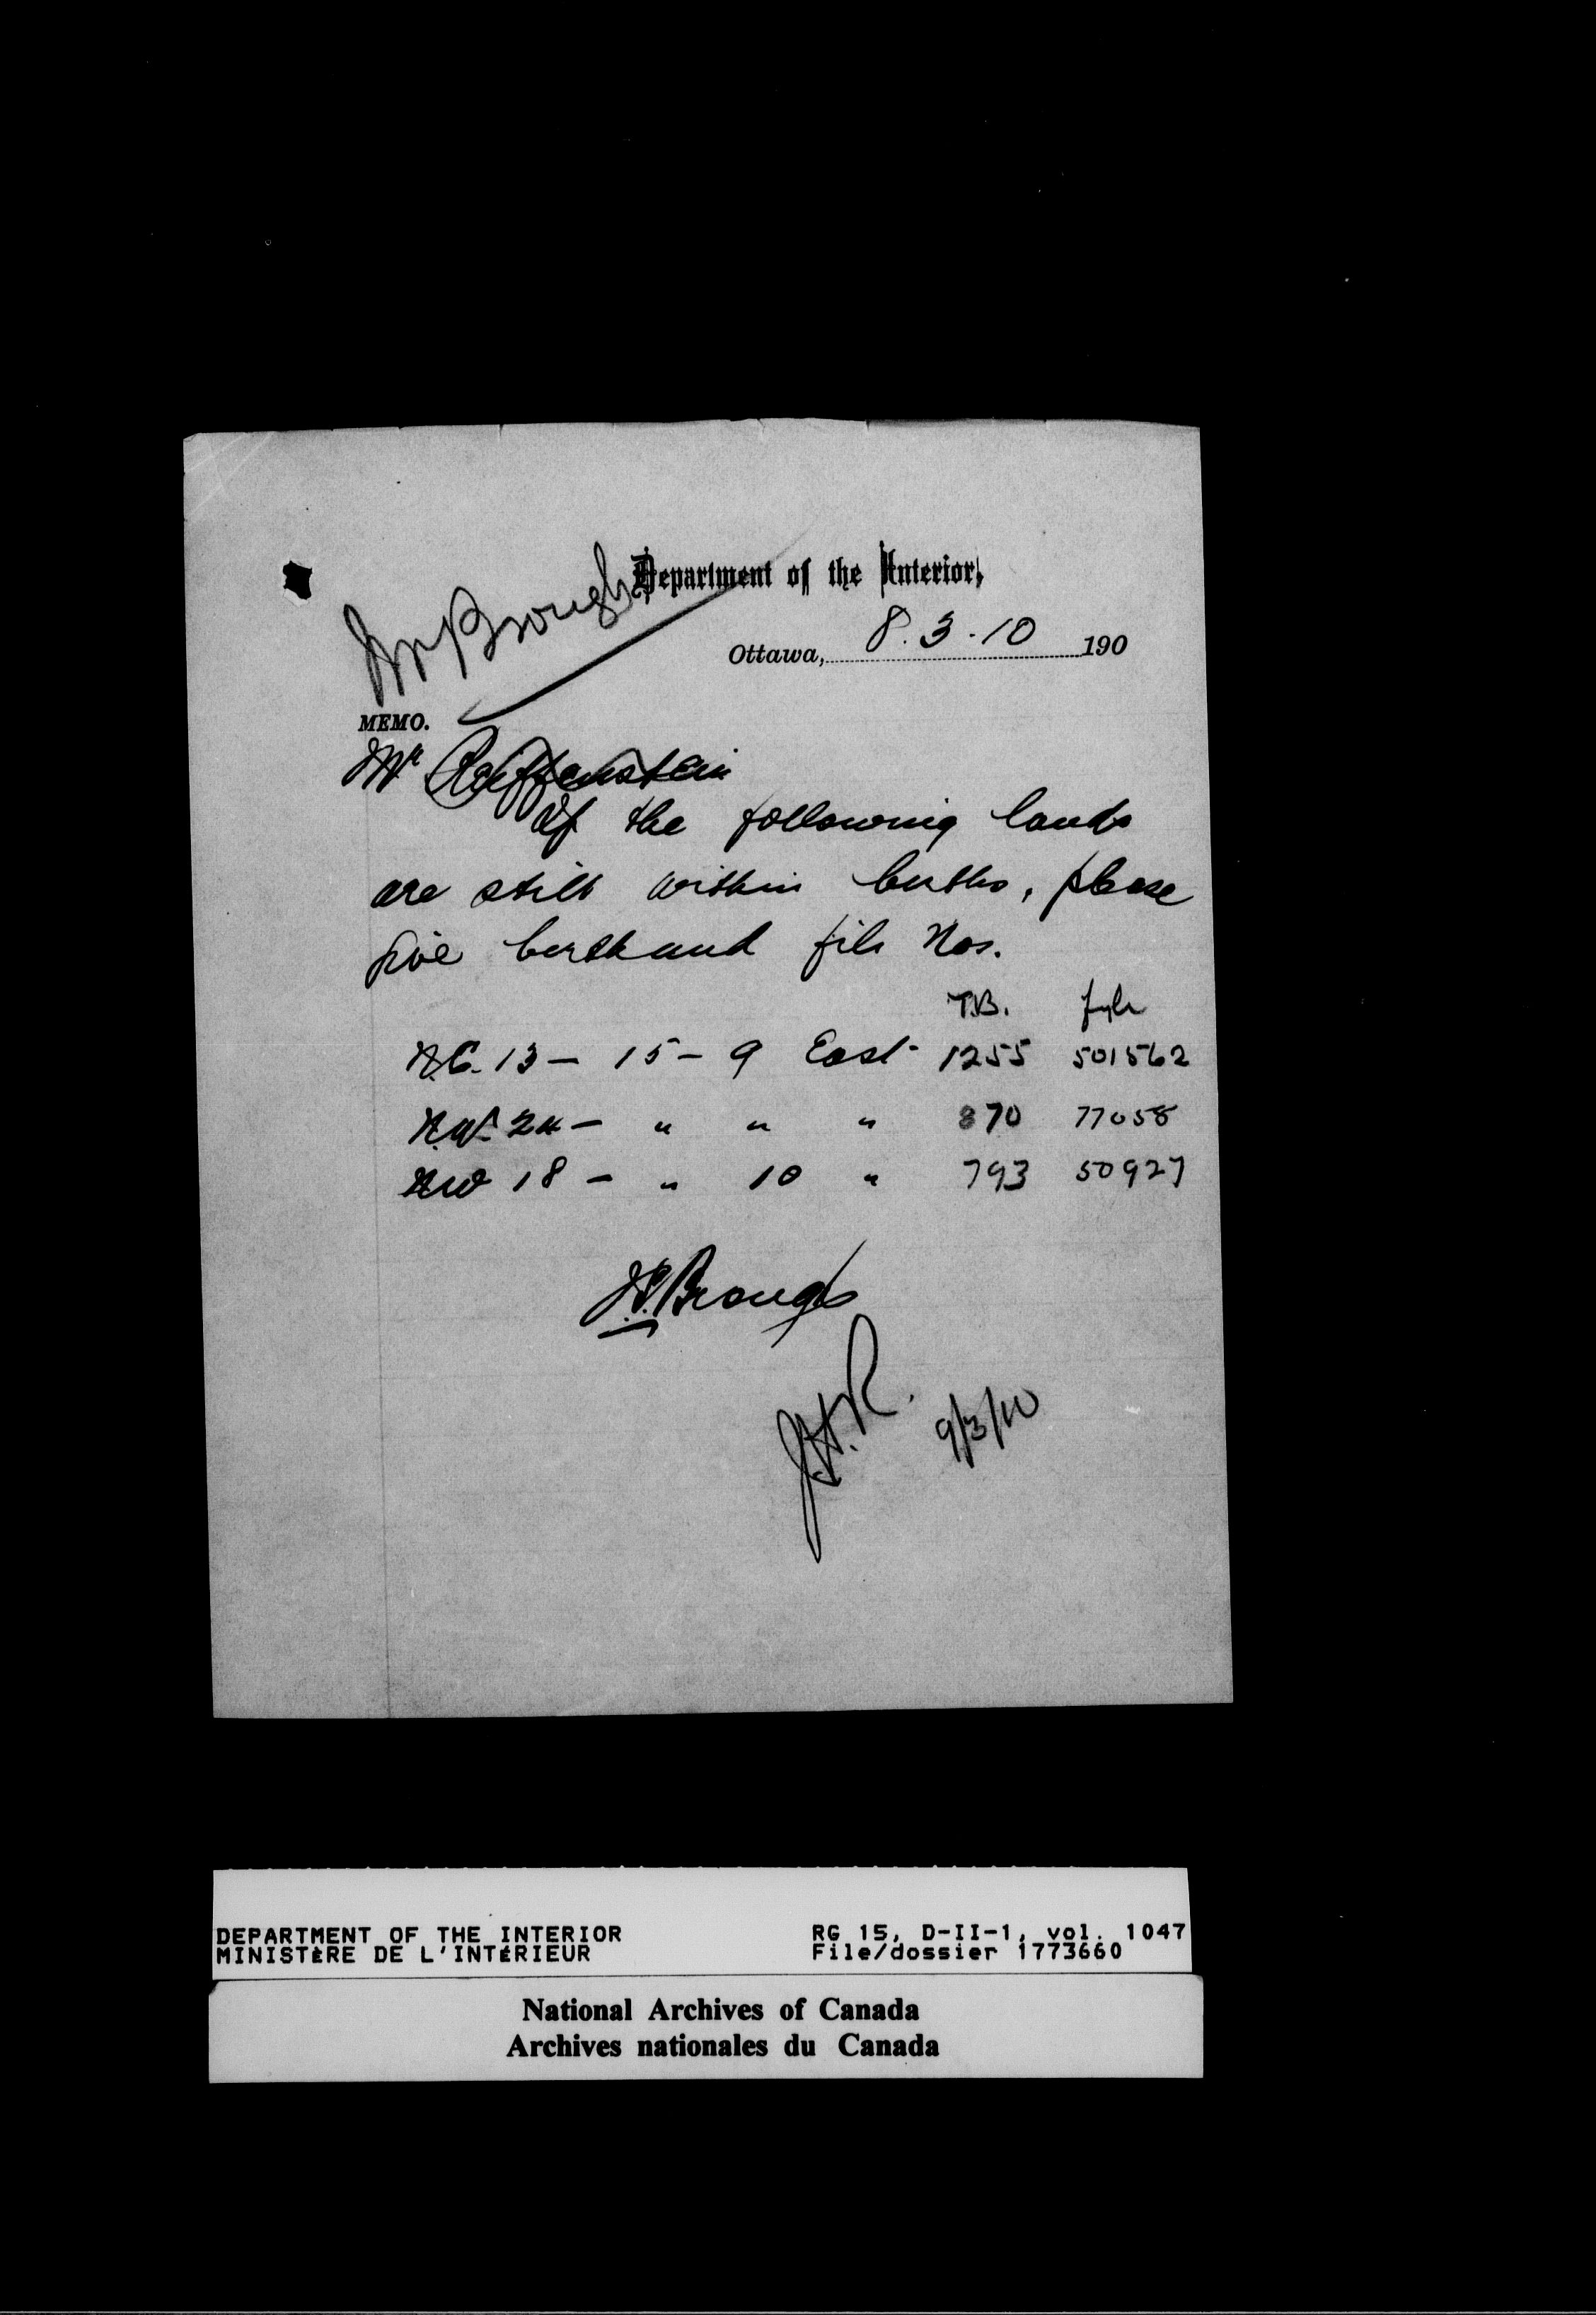 Department of the Interior,
Mr Brough
Ottawa, 8.3.10 190
MEMO.
Mr Reiffenstein
If the following lands
are still within berths, please
give berth and file Nos.
T.B. fyle
N.E. 13 — 15 — 9 East 1255 501562
N.W. 24 — " " " 870 77058
NW 18 — " 10 " 793 50927
Brough
J.H.R. 9/3/10
DEPARTMENT OF THE INTERIOR RG 15, D-II-1, vol. 1047
MINISTÈRE DE L'INTÉRIEUR File/dossier 1773660
National Archives of Canada
Archives nationales du Canada